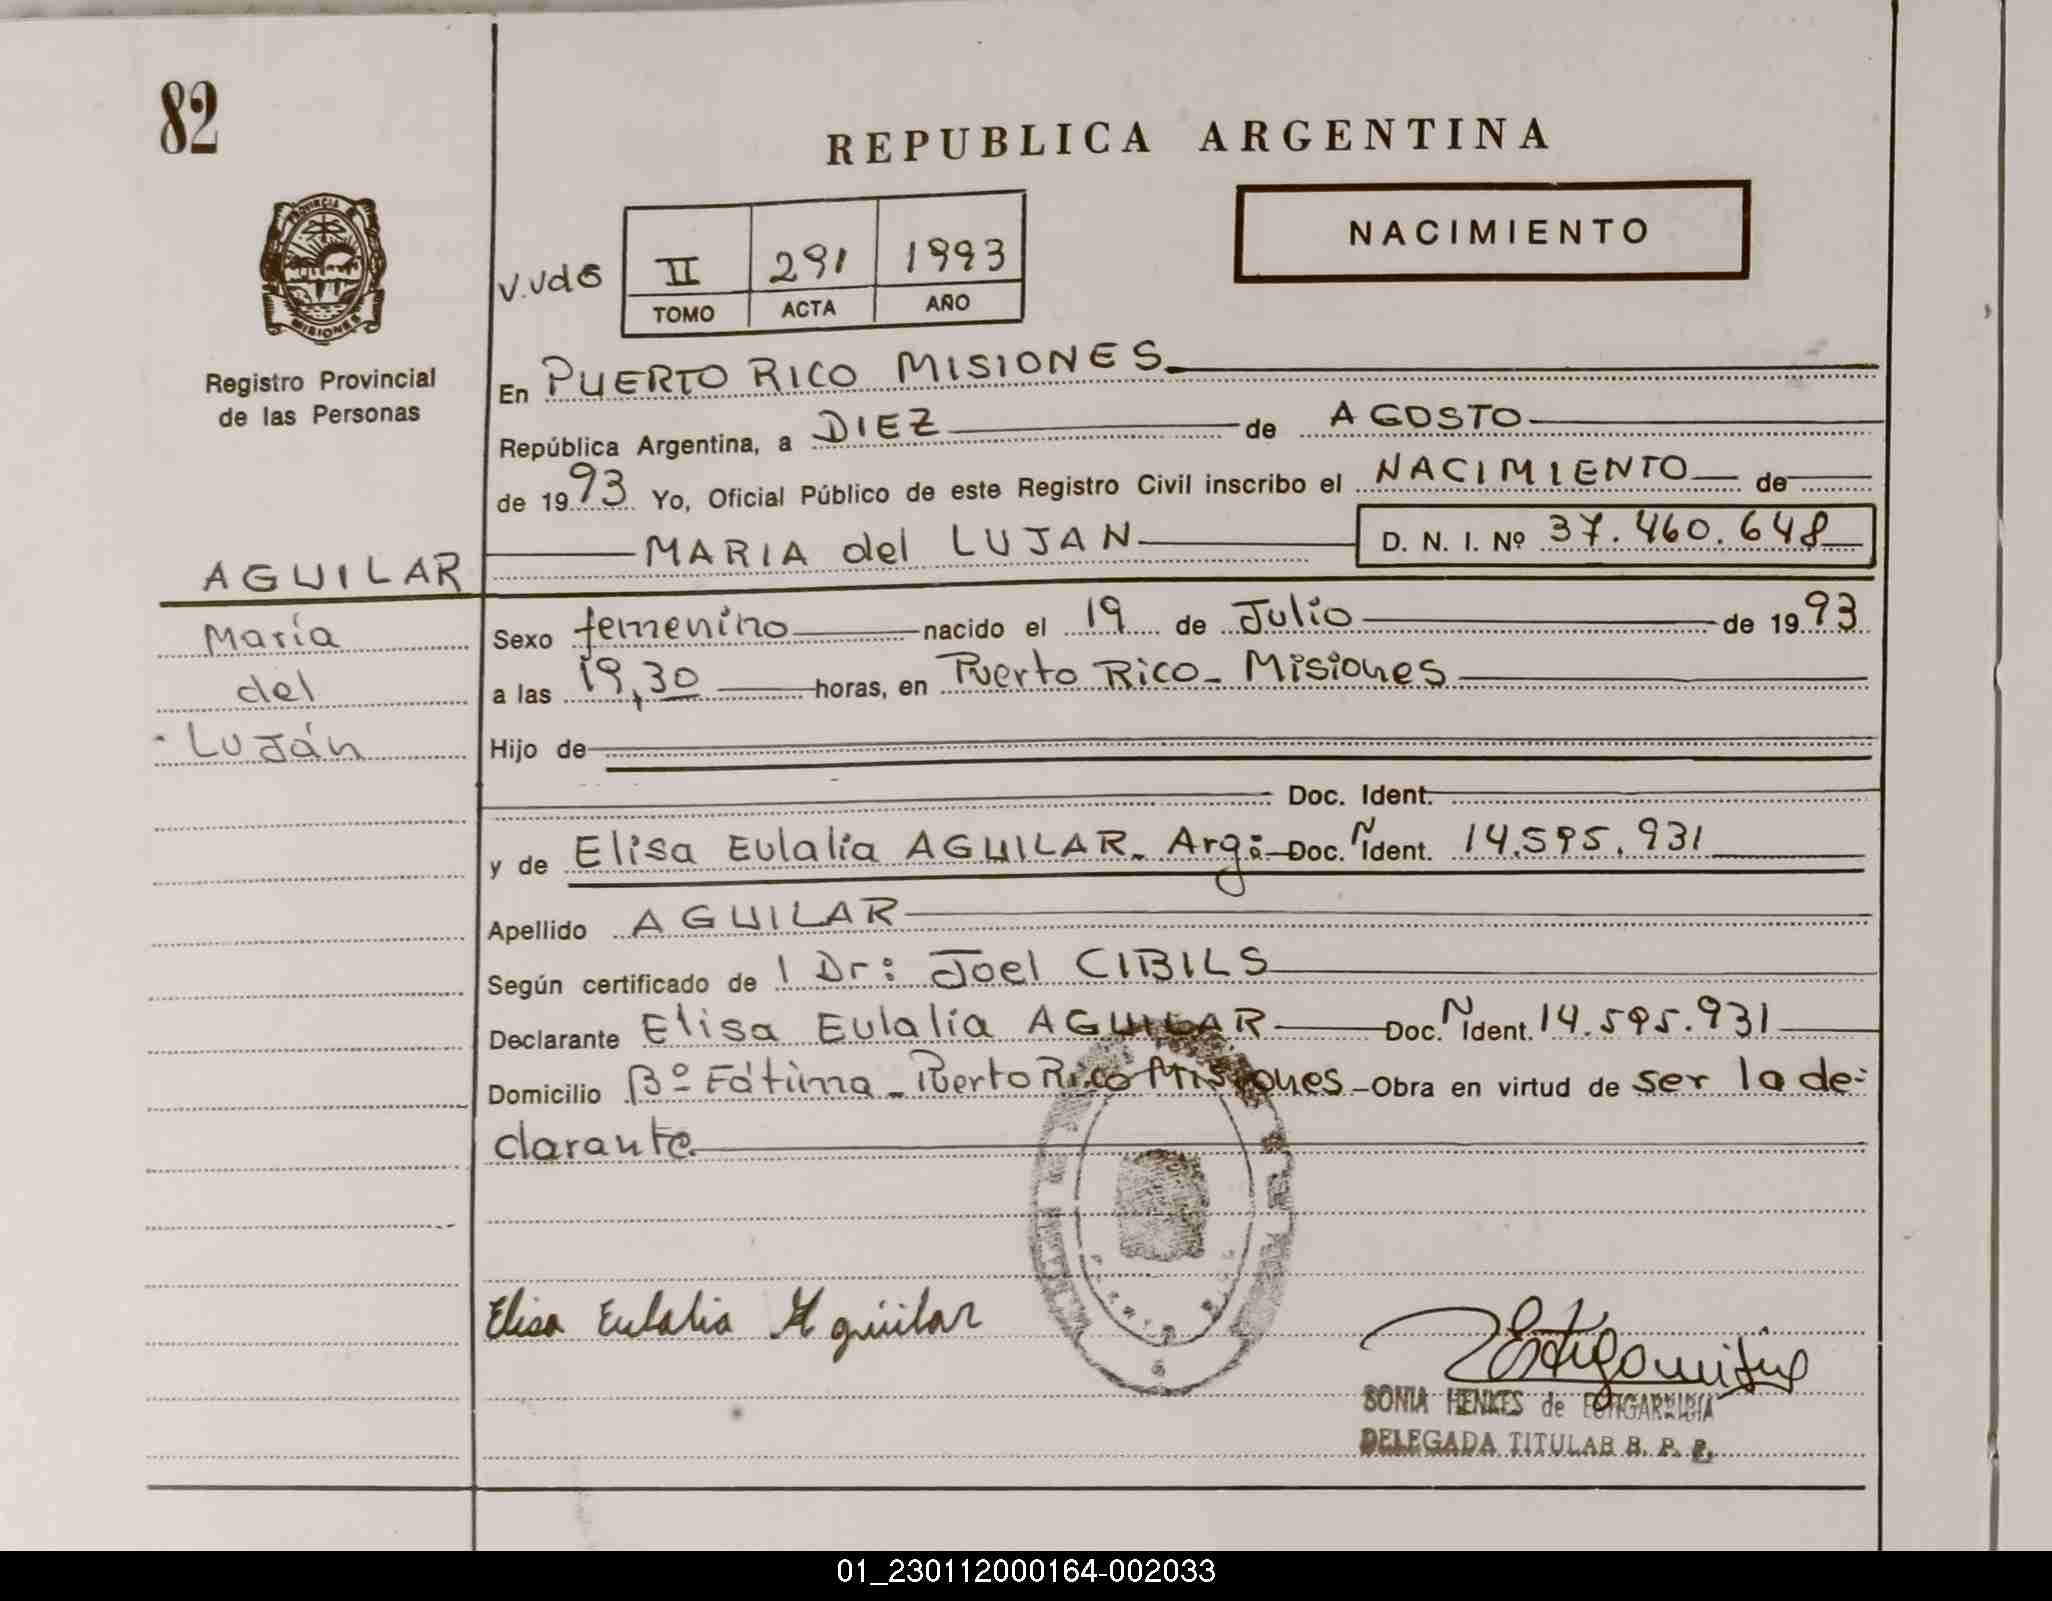 82
REPUBLICA ARGENTINA
NACIMIENTO
PROVINCIA DE
MISIONES
Registro Provincial
de las Personas
II 291 1993
TOMO ACTA AÑO
En PUERTO RICO MISIONES
República Argentina, a DIEZ de AGOSTO
de 1993 Yo, Oficial Público de este Registro Civil inscribo el NACIMIENTO de
MARIA del LUJAN D. N. I. Nº 37.460.648
AGUILAR
María
del
Luján
Sexo femenino nacido el 19 de Julio de 1993
a las 19,30 horas, en Puerto Rico - Misiones
Hijo de
Doc. Ident.
y de Elisa Eulalia AGUILAR. Arg: Doc. N Ident. 14.595.931
Apellido AGUILAR
Según certificado de l Dr: Joel CIBILS
Declarante Elisa Eulalia AGUILAR Doc. N Ident. 14.595.931
Domicilio Bº Fátima - Puerto Rico Misiones - Obra en virtud de ser la de-
clarante
Elisa Eulalia Aguilar
SONIA HENKES de ECHIGARRIBIA
DELEGADA TITULAR R. P. P.
01_230112000164-002033